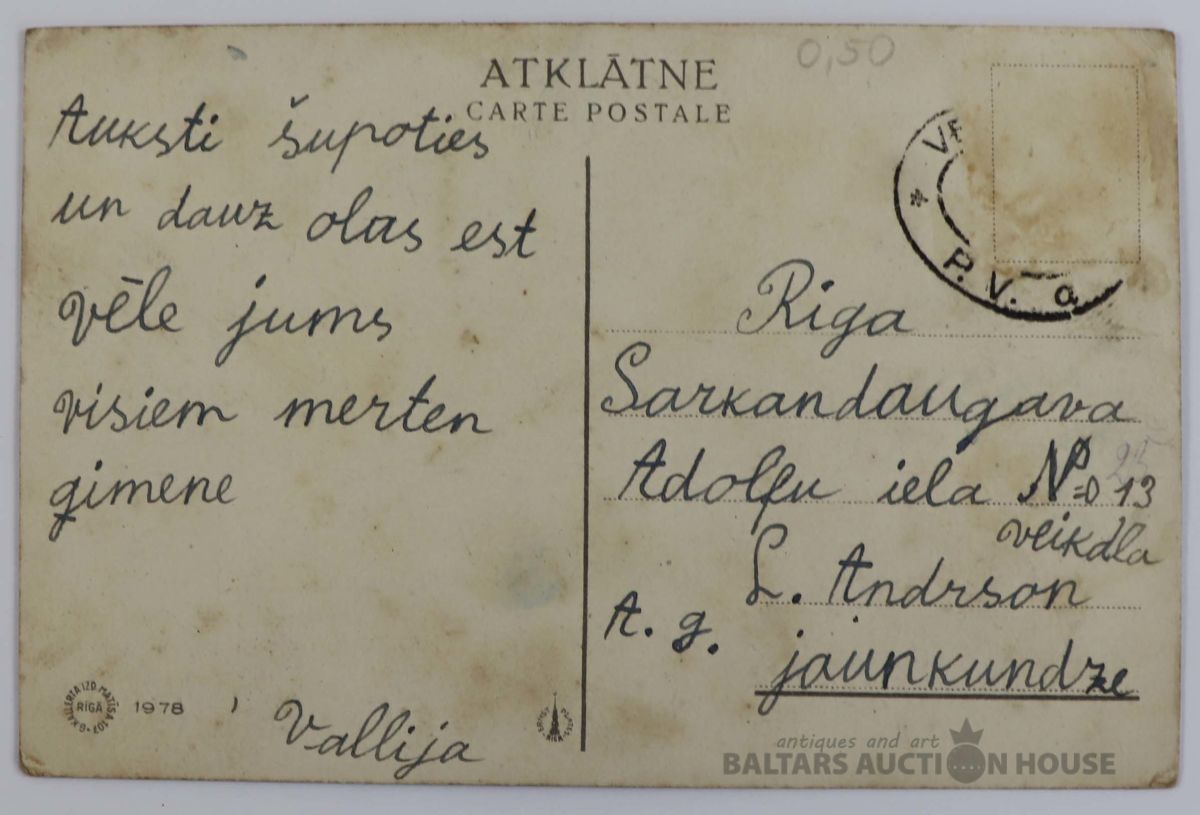 ATKLĀTNE
CARTE POSTALE
0,50
Auksti šupoties
un dauz olas est
vēle jums
visiem merten
ģimene
Vallija
VE
* P. V. a
Riga
Sarkandaugava
Adolfu iela № 13
25
veikala
L. Andrson
A. g.
jaunkundze
G. KALLERTA IZD. MATĪSA 107
RĪGĀ
1978
antiques and art
BALTARS AUCTION HOUSE